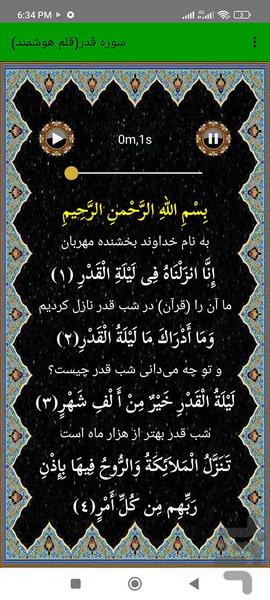 6:34 PM
3
سوره قدر(قلم هوشمند)
0m,1s
بِسْمِ اللهِ الرَّحْمنِ الرَّحِيمِ
به نام خداوند بخشنده مهربان
إِنَّا انزَلْنَاهُ فِی لَیْلَةِ الْقَدْرِ (۱)
ما آن را (قرآن) در شب قدر نازل کردیم
وَمَا أَدْرَاكَ مَا لَيْلَةُ الْقَدْرِ(۲)
و تو چه می‌دانی شب قدر چیست؟
لَيْلَةُ الْقَدْرِ خَيْرٌ مِنْ أَ لْفِ شَهْرٍ(۳)
شب قدر بهتر از هزار ماه است
تَنَزَّلُ الْمَلآئِكَةُ وَالرُّوحُ فِيهَا بِإِذْنِ
رَبِّهِم مِن كُلِّ أَمْرٍ(٤)